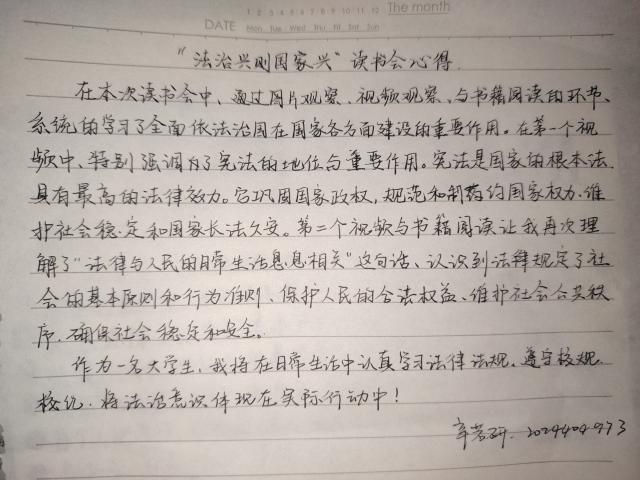 1 2 3 4 5 6 7 8 9 10 11 12 The month
DATE Mon Tue Wed Thu Fri Sat Sun
“法治兴则国家兴”读书会心得
在本次读书会中、通过图片观察、视频观察、与书籍阅读的环节、
系统的学习了全面依法治国在国家各方面建设的重要作用。在第一个视
频中、特别强调了宪法的地位与重要作用。宪法是国家的根本法、
具有最高的法律效力。它巩固国家政权，规范和制约国家权力、维
护社会稳定和国家长治久安。第二个视频与书籍阅读让我再次理
解了“法律与人民的日常生活息息相关”这句话、认识到法律规定了社
会的基本原则和行为准则、保护人民的合法权益、维护社会公共秩
序、确保社会稳定和安全。
作为一名大学生、我将在日常生活中认真学习法律法规。遵守校规、
校纪、将法治意识体现在实际行动中！